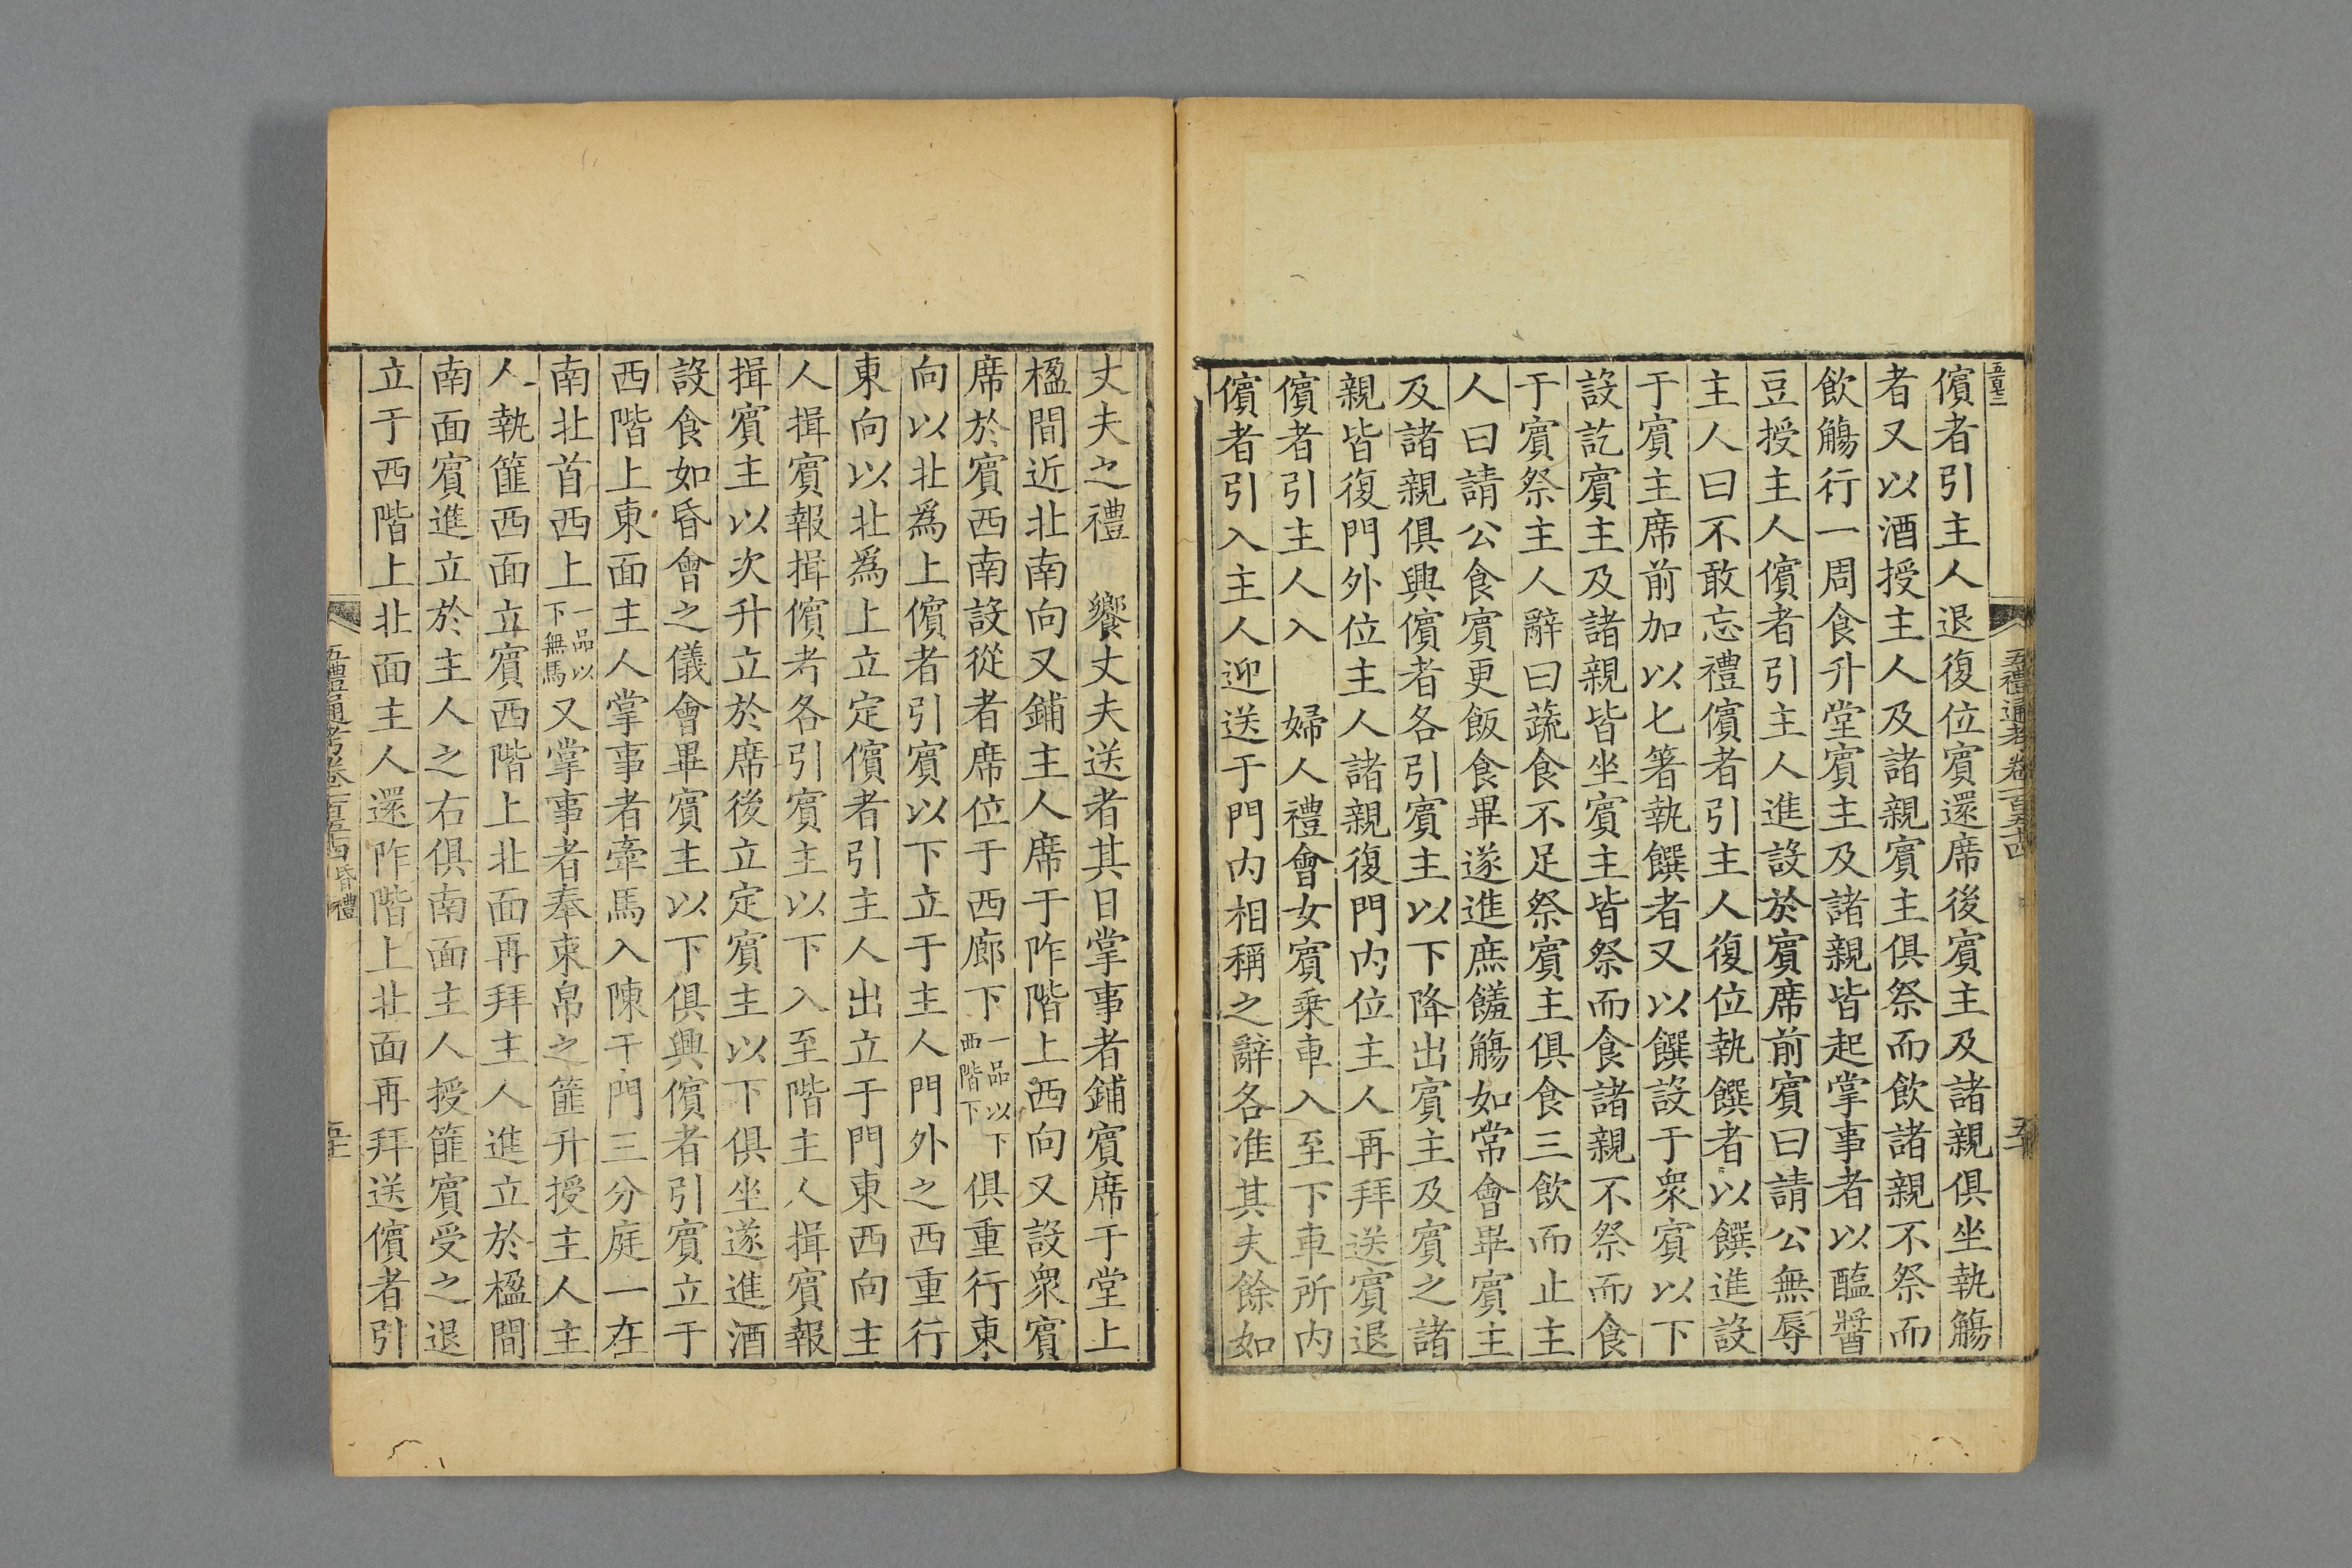 儐者引主人退復位賓還席後賓主及諸親俱坐執觴
者又以酒授主人及諸親賓主俱祭而飲諸親不祭而
飲觴行一周食升堂賓主及諸親皆起掌事者以醢醬
豆授主人儐者引主人進設於賓席前賓曰請公無辱
主人曰不敢忘禮儐者引主人復位執饌者以饌進設
于賓主席前加以匕箸執饌者又以饌設于衆賓以下
設訖賓主及諸親皆坐賓主皆祭而食諸親不祭而食
于賓祭主人辭曰蔬食不足祭賓主俱食三飲而止主
人曰請公食賓更飯食畢遂進庶饈觴如常會畢賓主
及諸親俱興儐者各引賓主以下降出賓主及賓之諸
親皆復門外位主人諸親復門內位主人再拜送賓退
儐者引主人入　婦人禮會女賓乘車入至下車所內
儐者引入主人迎送于門內相稱之辭各准其夫餘如
五禮通考卷一百五十四
丈夫之禮　饗丈夫送者其日掌事者鋪賓席于堂上
楹間近北南向又鋪主人席于阼階上西向又設衆賓
席於賓西南設從者席位于西廊下一品以下西階下俱重行東
向以北爲上儐者引賓以下立于主人門外之西重行
東向以北爲上立定儐者引主人出立于門東西向主
人揖賓報揖儐者各引賓主以下入至階主人揖賓報
揖賓主以次升立於席後立定賓主以下俱坐遂進酒
設食如昏會之儀會畢賓主以下俱興儐者引賓立于
西階上東面主人掌事者牽馬入陳于門三分庭一在
南北首西上一品以下無馬又掌事者奉束帛之篚升授主人主
人執篚西面立賓西階上北面再拜主人進立於楹間
南面賓進立於主人之右俱南面主人授篚賓受之退
立于西階上北面主人還阼階上北面再拜送儐者引
五禮通考卷一百五十四昏禮